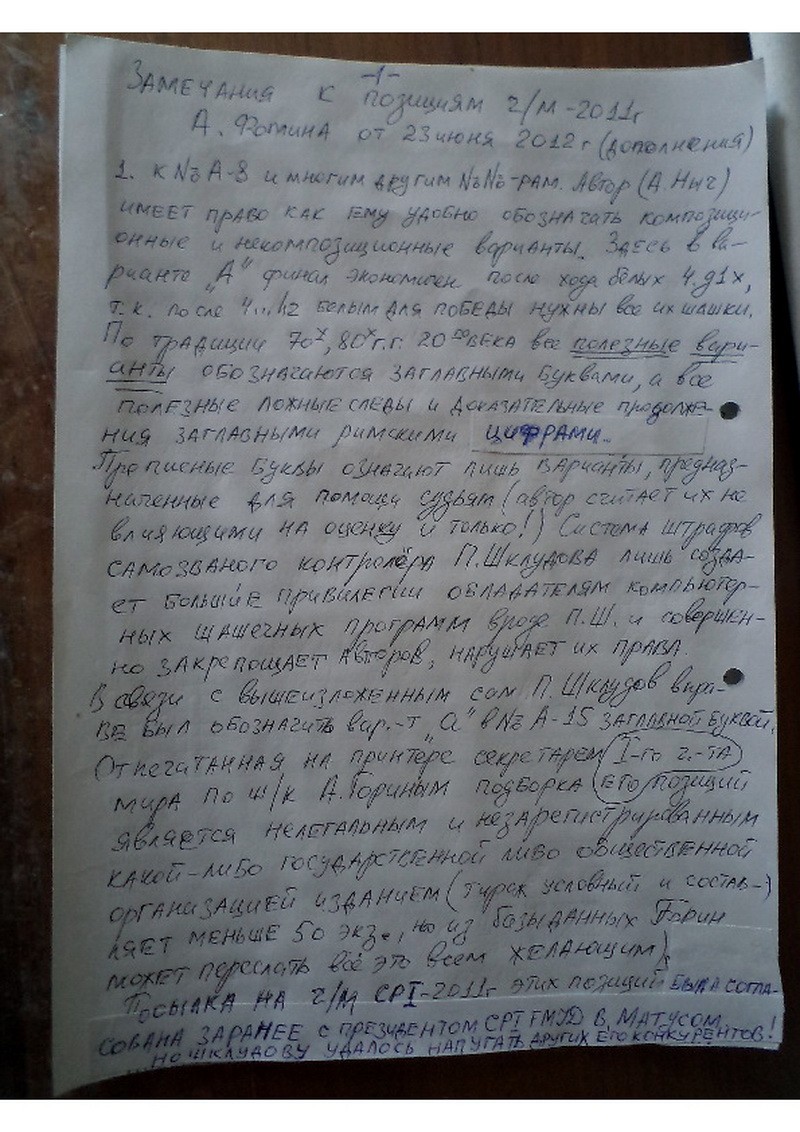 -1-
ЗАМЕЧАНИЯ К ПОЗИЦИЯМ Ч/М-2011г
А. ФОМИНА от 23 июня 2012г (дополнения)
1. К № А-8 и многим другим №№-рам. Автор (А. Ныч)
имеет право как ему удобно обозначать композици-
онные и некомпозиционные варианты. Здесь в ва-
рианте „А" финал экономичен после хода белых 4.g1x,
т.к. после 4...h2 белым для победы нужны все их шашки.
По традиции 70х, 80х г.г. 20го века все полезные вари-
анты обозначаются заглавными буквами, а все
полезные ложные следы и доказательные продолже-
ния заглавными римскими цифрами.
Прописные буквы означают лишь варианты, предназ-
наченные для помощи судьям (автор считает их не
влияющими на оценку и только!) Система штрафов
самозваного контролёра П. Шклудова лишь созда-
ет большие привилегии обладателям компьютер-
ных шашечных программ вроде П.Ш. и совершен-
но закрепощает авторов, нарушает их права.
В связи с вышеизложенным сам П. Шклудов впра-
ве был обозначить вар.-т „а" в № А-15 заглавной буквой.
Отпечатанная на принтере секретарем I-го ч.-та
мира по ш/к А. Гориным подборка его позиций
является нелегальным и незарегистрированным
какой-либо государственной либо общественной
организацией изданием (тираж условный и состав-
ляет меньше 50 экз., но из базы данных Горин
может переслать всё это всем желающим).
Посылка на Ч/М CPI-2011г этих позиций была согла-
сована заранее с президентом CPI FMJD В. Матусом,
но Шклудову удалось напугать других его конкурентов!